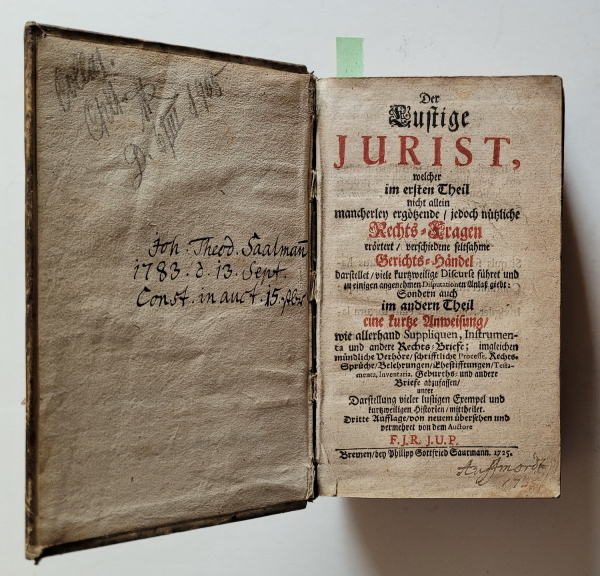 Joh. Theod. Saalmañ
1783. d. 13. Sept.
Const. in auct. 15.
Der
Lustige
JURIST,
welcher
im ersten Theil
nicht allein
mancherley ergötzende / jedoch nützliche
Rechts-Fragen
erörtert / verschiedene seltsahme
Gerichts-Händel
darstellet / viele kurtzweilige Discurse führet und
zu einigen angenehmen Disputationen Anlaß giebt:
Sondern auch
im andern Theil
eine kurtze Anweisung /
wie allerhand Suppliquen, Instrumen-
ta und andere Rechts-Briefe; imgleichen
mündliche Verhöre / schrifftliche Processe, Rechts-
Sprüche / Belehrungen / Ehestifftungen / Testa-
menta, Inventaria, Geburths- und andere
Briefe abzufassen /
unter
Darstellung vieler lustigen Exempel und
kurtzweiligen Historien / mittheilet.
Dritte Aufflage / von neuem übersehen und
vermehret von dem Auctore
F.J.R. J.U.P.
Bremen / bey Philipp Gottfried Saurmann. 1725.